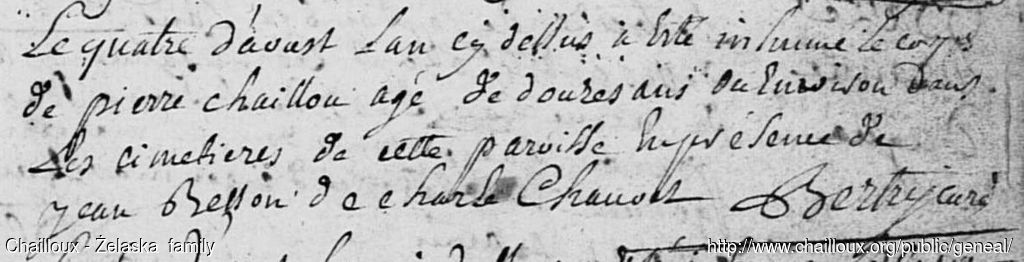 Le quatre d'avust Lan cy dessus à Esté inhumé Le corps
de pierre chaillou agé de douzes ans ou Environ Dans
Les cimetieres de cette paroisse En présence de
jean Besson de charle Chauvet Bertry curé
Chailloux - Želaska family
http://www.chailloux.org/public/geneal/